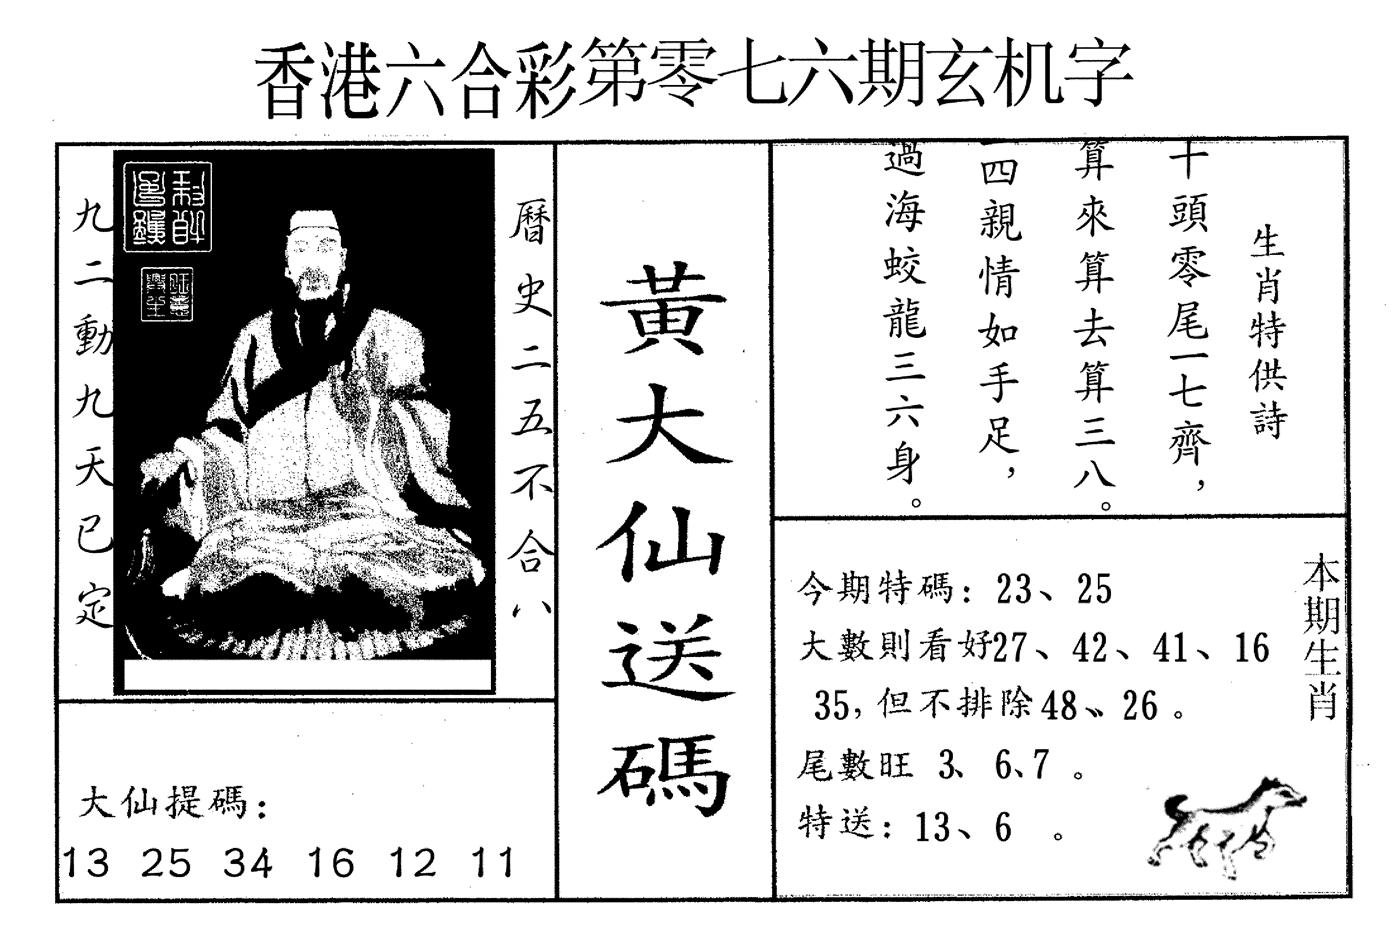 香港六合彩第零七六期玄机字
曆史二五不合八
九二動九天已定
大仙提碼：
13 25 34 16 12 11
黃大仙送碼
生肖特供詩
十頭零尾一七齊，
算來算去算三八。
四親情如手足，
過海蛟龍三六身。
本期生肖
今期特碼：23、25
大數則看好27、42、41、16
35，但不排除48、26。
尾數旺 3、6、7。
特送：13、6 。